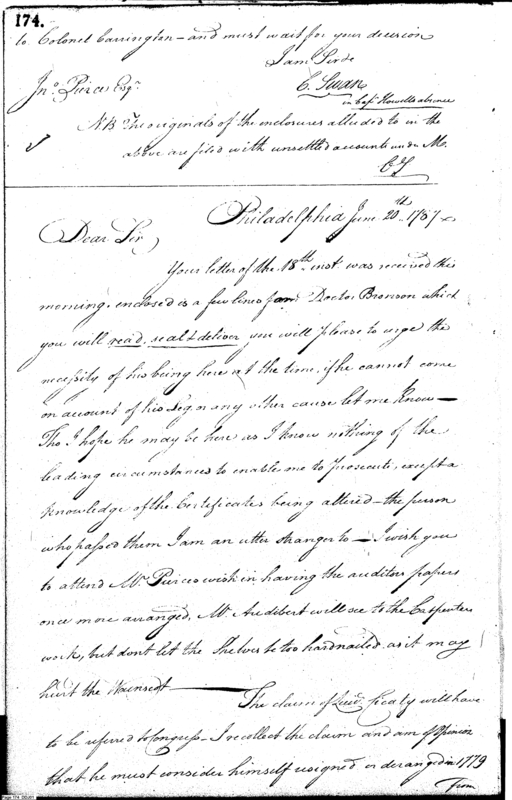 174.
to Colonel Carrington – and must wait for your decision
I am Sir &c
Jno. Pierce Esqr.
C. Swan
in Capt. Howells absence
NB The originals of the enclosures alluded to in the
above are filed with unsettled accounts under M.
CS
Philadelphia June 20th. 1787
Dear Sir
Your letter of the 18th inst was received this
morning. enclosed is a few lines for Doctor Bronson which
you will read, seal & deliver you will please to urge the
necessity of his being here at the time, if he cannot come
on account of his Leg or any other cause let me Know —
Tho I hope he may be here as I know nothing of the
leading circumstances to enable me to Prosecute, except a
knowledge of the Certificates being altered – the person
who passed them I am an utter stranger to — I wish you
to attend Mr. Pierces wish in having the auditors papers
once more arranged, Mr. Audibert will see to the Carpenters
work, but dont let the Shelves be too hard nailed as it may
hurt the Wainscot —
The claim of Lieut. will have
to be referred to Congress – I recollect the claim and am of Opinion
that he must consider himself resigned or deranged in 1779
From